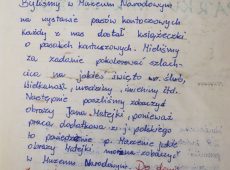 Byliśmy w Muzeum Narodowym
na wystawie pasów kontuszowych.
Każdy z nas dostał książeczki
o pasach kontuszowych. Mieliśmy
za zadanie pokolorować szlach-
cica na jakieś święto np. ślub,
Wielkanoc, urodziny, imieniny itd.
Następnie poszliśmy zobaczyć
obrazy Jana Matejki, ponieważ
praca dodatkowa z j. polskiego
to
obrazy Matejki, można zobaczyć
w Muzeum Narodowym.